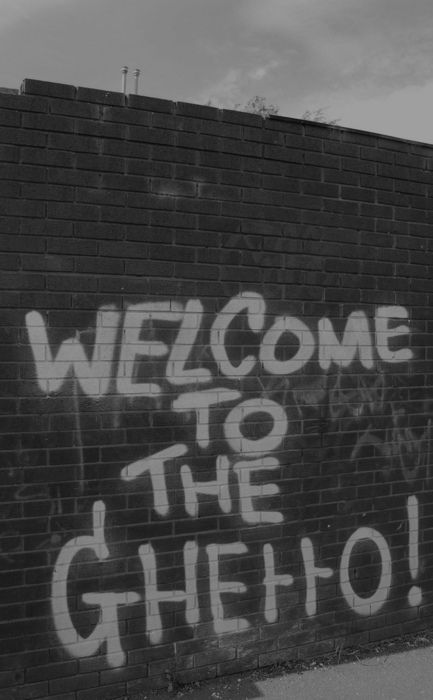 WELCOME
TO
THE
GHETTO!